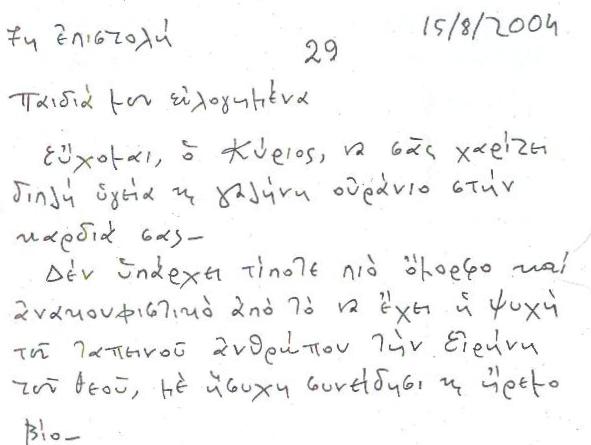 7η ἐπιστολή
15/8/2004
29
Παιδιά μου εὐλογημένα
Εὔχομαι, ὁ Κύριος, νά σᾶς χαρίζει
διπλή ὑγεία κ γαλήνη οὐράνιο στήν
καρδιά σας–
Δέν ὑπάρχει τίποτε πιό ὄμορφο καί
ἀνακουφιστικό ἀπό τό νά ἔχει ἡ ψυχή
τοῦ ταπεινοῦ ἀνθρώπου τήν εἰρήνη
τοῦ Θεοῦ, μέ ἥσυχη συνείδησι κ ἤρεμο
βίο–